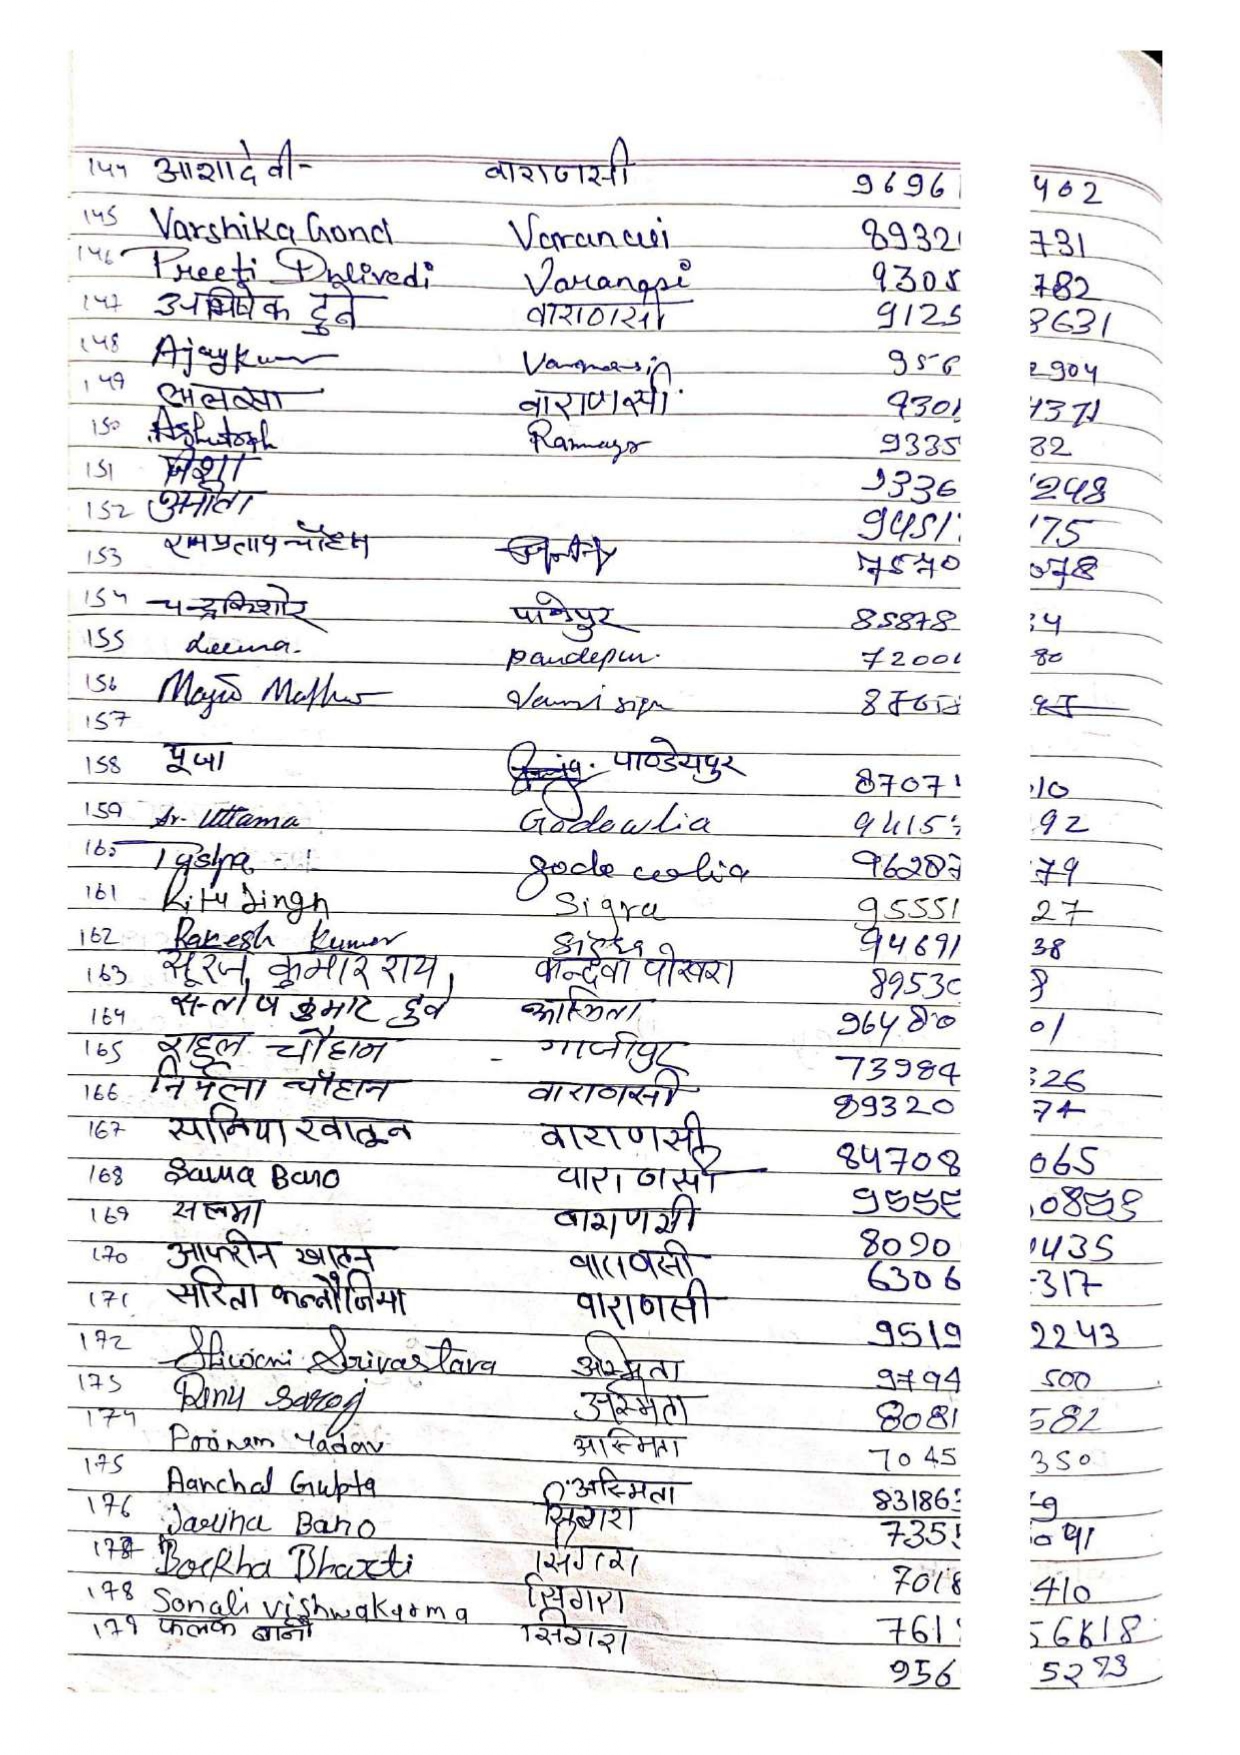 144 आशादेवी- वाराणसी 9696 402
145 Varshika Gond Varanasi 8932 731
146 Preeti Dwivedi Varanasi 9305 782
147 अभिषेक दुबे वाराणसी 9125 3631
148 Ajay Kumar Varanasi 956 2904
149 वाराणसी 9301 4371
150 Ashutosh Ramnagar 9335 82
151 9336 248
152 9451 175
153 रामप्रताप चौहान 7570 078
154 चन्द्रकिशोर पाण्डेपुर 85878 34
155 pandepur. 7200 80
156 8765
157
158 पूजा पाण्डेयपुर 8707 10
159 Dr. Uttama Godowlia 9415 92
160 godowlia 96287 79
161 Ritu Singh Sigra 95551 27
162 Rakesh Kumar Sigra 94691 38
163 सूरज कुमार राय, 8953 8
164 सन्तोष कुमार दुबे अस्मिता 96480 01
165 राहुल चौहान - गाजीपुर 73984 326
166 निर्मला चौहान वाराणसी 89320 74
167 सानिया खातून वाराणसी 84708 065
168 Sama Bano वाराणसी 9555 0853
169 सलमा वाराणसी 8090 435
170 आफरीन खातून वाराणसी 6306 317
171 सरिता कन्नौजिया वाराणसी 9519 2243
172 Shivani Srivastava अस्मिता 9794 500
173 Renu Saroj अस्मिता 8081 582
174 Poonam Yadav अस्मिता 7045 350
175 Aanchal Gupta अस्मिता 83186 9
176 Bano सिगरा 735 091
177 Barkha Bharti सिगरा 7018 410
178 Sonali vishwakarma सिगरा 761 56618
179 फलक बानो सिगरा 956 5273